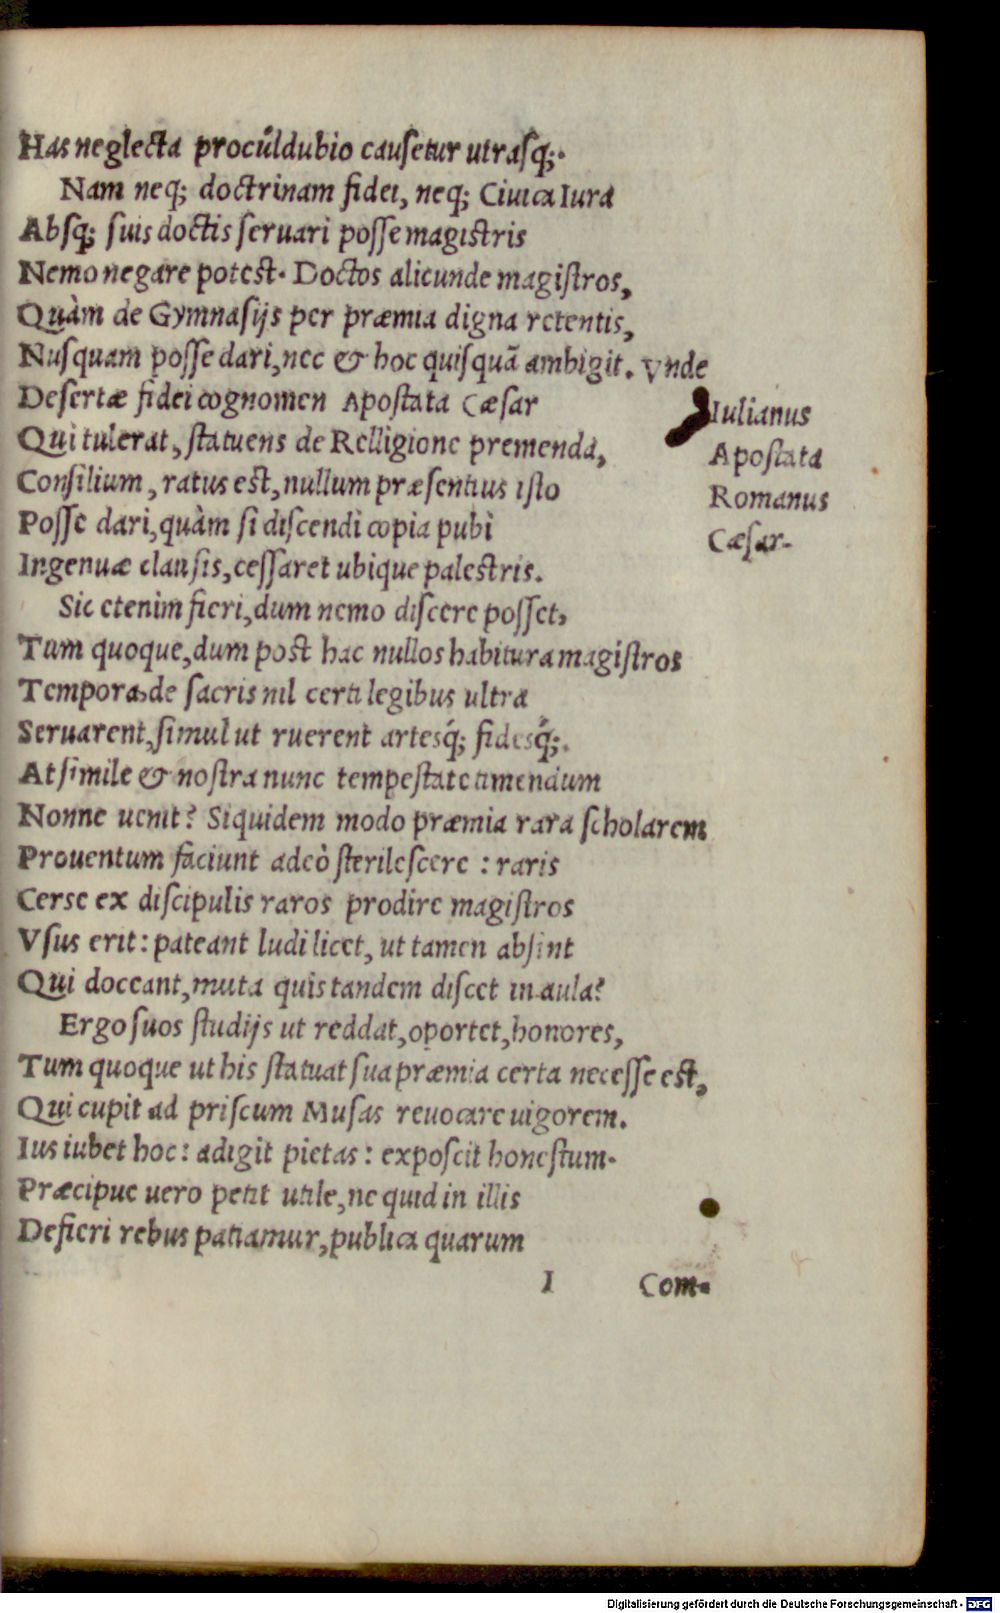 Has neglecta procúldubio causetur utrasq;.
Nam neq; doctrinam fidei, neq; Ciuica Iura
Absq; suis doctis seruari posse magistris
Nemo negare potest. Doctos alicunde magistros,
Quàm de Gymnasijs per præmia digna retentis,
Nusquam posse dari, nec & hoc quisquã ambigit. Vnde
Desertæ fidei cognomen Apostata Cæsar
Qui tulerat, statuens de Relligione premenda,
Consilium, ratus est, nullum præsentius isto
Posse dari, quàm si discendi copia pubi
Ingenuæ clausis, cessaret ubique palestris.
Sic etenim fieri, dum nemo discere posset,
Tum quoque, dum post hac nullos habitura magistros
Tempora, de sacris nil certi legibus ultra
Seruarent, simul ut ruerent artesq́; fidesq́;.
At simile & nostra nunc tempestate timendum
Nonne uenit? Siquidem modo præmia rara scholarem
Prouentum faciunt adeò sterilescere : raris
Cerse ex discipulis raros prodire magistros
Vsus erit: pateant ludi licet, ut tamen absint
Qui doceant, muta quis tandem discet in aula?
Ergo suos studijs ut reddat, oportet, honores,
Tum quoque ut his statuat sua præmia certa necesse est,
Qui cupit ad priscum Musas reuocare uigorem.
Ius iubet hoc: adigit pietas: exposcit honestum.
Præcipue uero petit utile, ne quid in illis
Defieri rebus patiamur, publica quarum
I Com-
Iulianus
Apostata
Romanus
Cæsar.
Digitalisierung gefördert durch die Deutsche Forschungsgemeinschaft - DFG